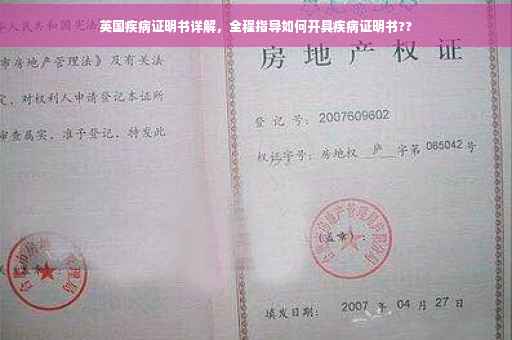 英国疾病证明书详解，全程指导如何开具疾病证明书??
市房地产管理法》及有关法
定，对权利人申请登记本证所
审查属实，准予登记，特发此
房地产权证
登记号：2007609602
权证字号：房地权 庐 字第 065042 号
(盖章)：
填发日期：2007 年 04 月 27 日